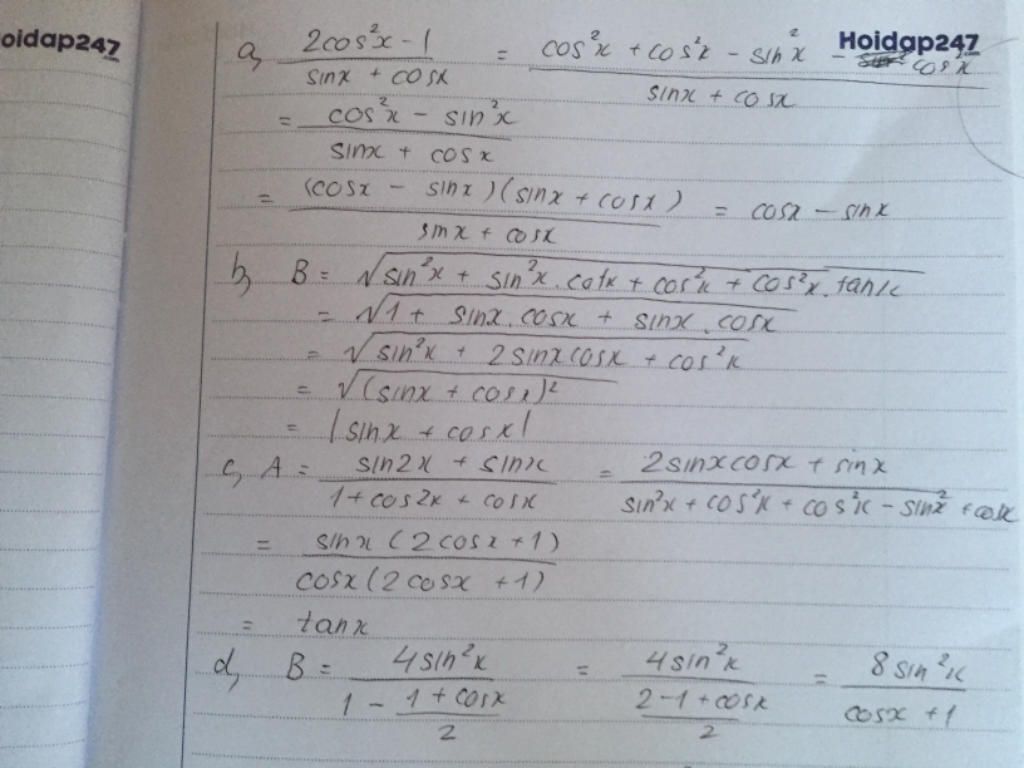 oidap247
Hoidap247
a, (2cos²x - 1)/(sinx + cosx) = (cos²x + cos²x - sin²x - cos²x)/(sinx + cosx)
= (cos²x - sin²x)/(sinx + cosx)
= ((cosx - sinx)(sinx + cosx))/(sinx + cosx) = cosx - sinx
b, B = √(sin²x + sin²x.cotx + cos²x + cos²x.tanx)
= √(1 + sinx.cosx + sinx.cosx)
= √(sin²x + 2sinxcosx + cos²x)
= √((sinx + cosx)²)
= |sinx + cosx|
c, A = (sin2x + sinx)/(1 + cos2x + cosx) = (2sinxcosx + sinx)/(sin²x + cos²x + cos²x - sin²x + cosx)
= (sinx(2cosx + 1))/(cosx(2cosx + 1))
= tanx
d, B = (4sin²x)/(1 - (1 + cosx)/2) = (4sin²x)/((2 - 1 + cosx)/2) = (8sin²x)/(cosx + 1)